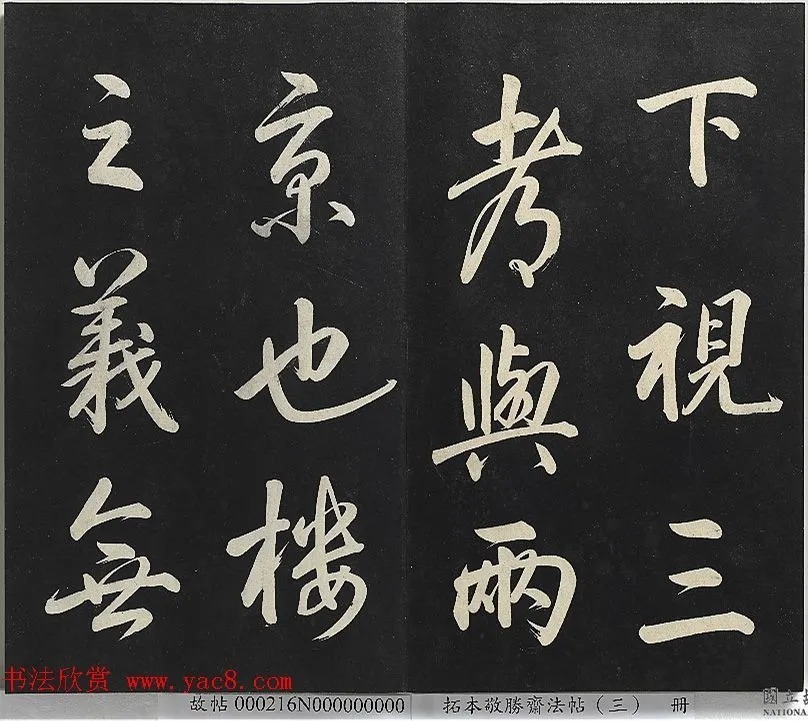 下視三
與兩
京也樓
之義無
书法欣赏 www.yac8.com
故帖 000216N000000000 拓本敬勝齋法帖（三） 册
國立
NATIONA